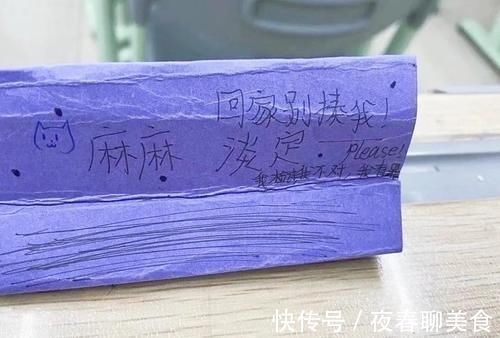 回家别揍我！
麻麻 淡定
please!
我 不对，我有罪
快传号／夜春聊美食